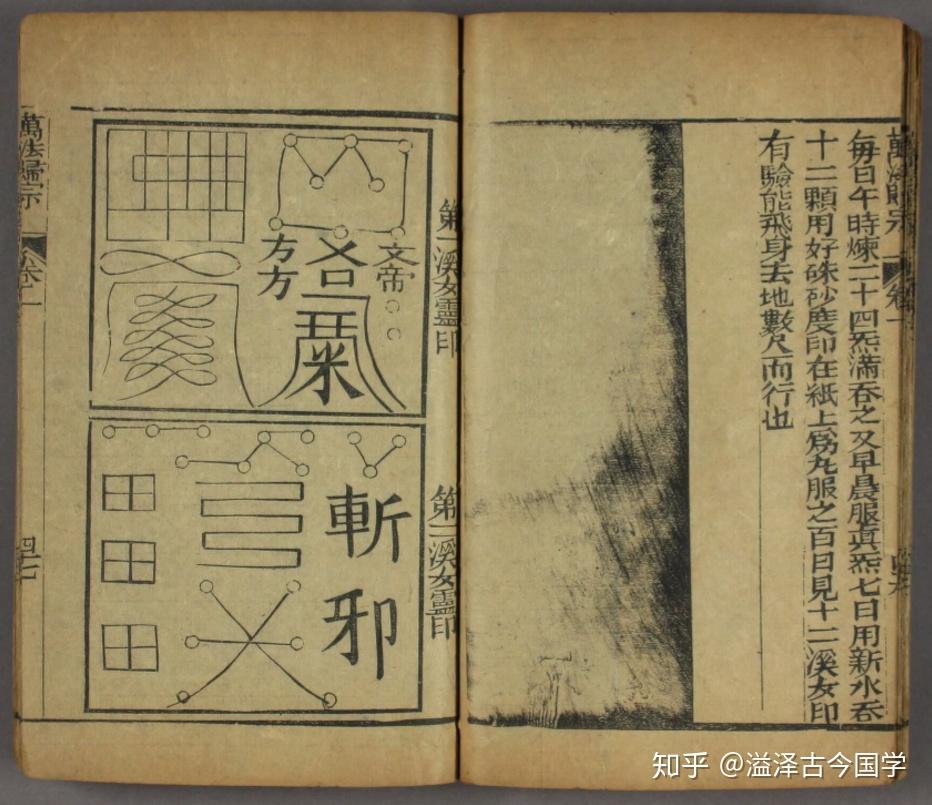 每日午時煉二十四炁滿吞之又早晨服真炁七日用新水吞
十二顆用好硃砂度印在紙上為丸服之百日見十二溪女印
有驗能飛身去地數尺而行也
萬法歸宗
卷一
第一溪女靈印
文帝
方方
第二溪女靈印
斬邪
萬法歸宗
卷二
四七
知乎 @溢泽古今国学